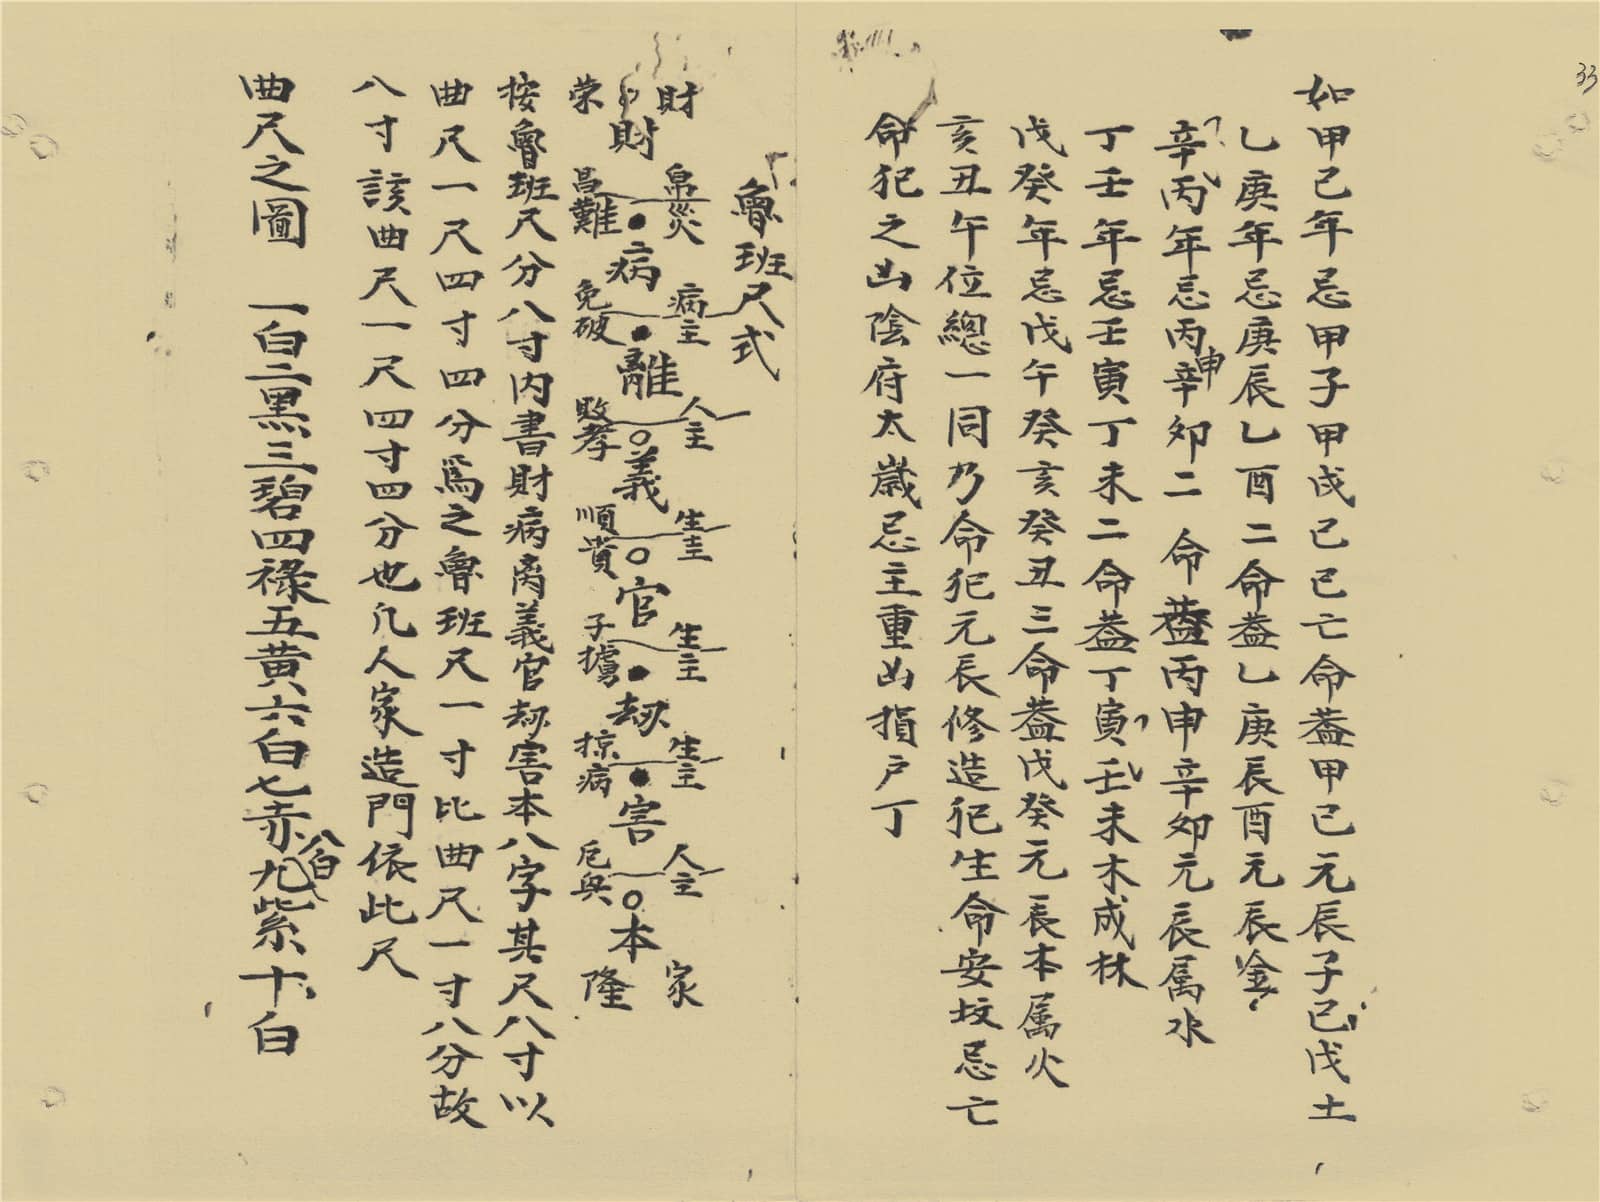 33
如甲己年忌甲子甲戌己巳亡命蓋甲己元辰子巳戌土
乙庚年忌庚辰乙酉二命蓋乙庚辰酉元辰金
辛丙年忌丙申辛卯二命蓋丙申辛卯元辰属水
丁壬年忌壬寅丁未二命蓋丁寅壬未木成林
戊癸年忌戊午癸亥癸丑三命蓋戊癸元辰本属火
亥丑午位總一同乃命犯元辰修造犯生命安坟忌亡
命犯之凶陰府太歲忌主重凶損户丁
魯班尺式
財 帛災 病主 人主 生主 生主 生主 人主 家
財 病 離 義 官 劫 害 本
荣 昌難 免破 敗孝 順貴 子擄 掠病 厄興 隆
按魯班尺分八寸内書財病离義官劫害本八字其尺八寸以
曲尺一尺四寸四分爲之魯班尺一寸比曲尺一寸八分故
八寸該曲尺一尺四寸四分也凡人家造門依此尺
曲尺之圖 一白二黑三碧四祿五黄六白七赤八白九紫十白